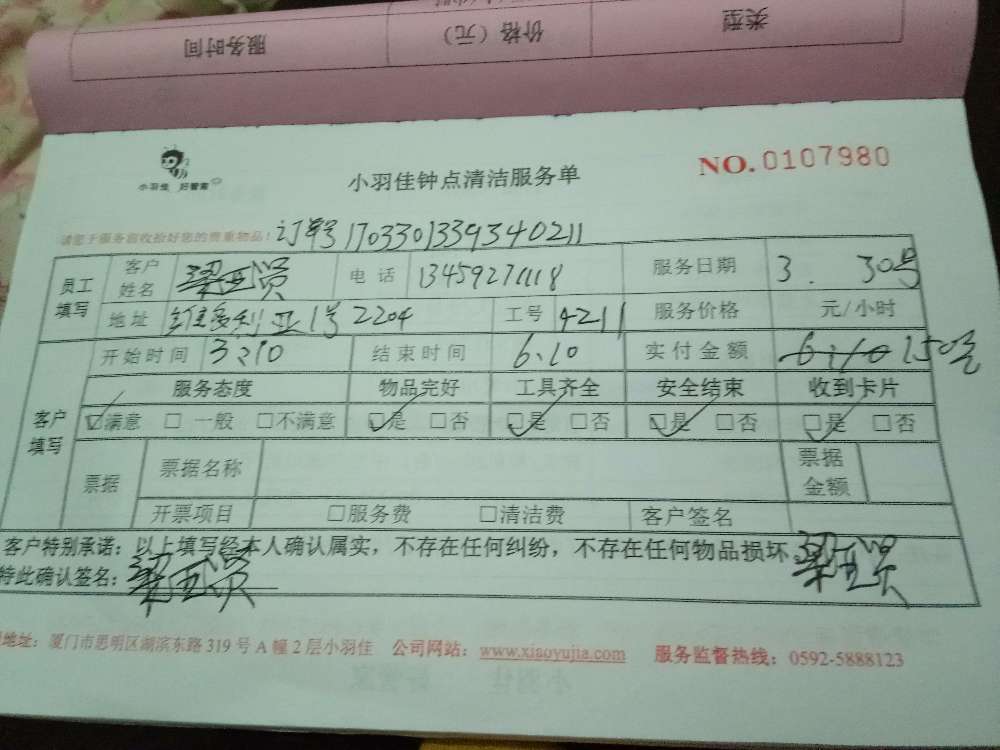 类型 价格（元） 服务时间
小羽佳 好管家
小羽佳钟点清洁服务单
NO.0107980
请您于服务前收拾好您的贵重物品！ 订单号1703301339340211
员工填写 客户姓名 梁亚贤 电话 13459271118 服务日期 3. 30号
地址 维多利亚1号2204 工号 4211 服务价格 元/小时
客户填写 开始时间 3:10 结束时间 6:10 实付金额 150元
服务态度 物品完好 工具齐全 安全结束 收到卡片
☑满意 □一般 □不满意 ☑是 □否 ☑是 □否 ☑是 □否 ☑是 □否
票据 票据名称 票据金额
开票项目 □服务费 □清洁费 客户签名
客户特别承诺：以上填写经本人确认属实，不存在任何纠纷，不存在任何物品损坏。 梁亚贤
特此确认签名：梁亚贤
地址：厦门市思明区湖滨东路 319 号 A 幢 2 层小羽佳 公司网站：www.xiaoyujia.com 服务监督热线：0592-5888123